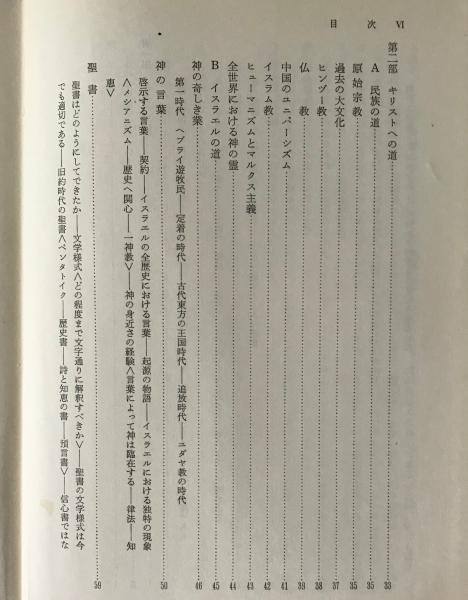 目次 Ⅵ
第二部 キリストへの道……33
A 民族の道……35
原始宗教……35
過去の大文化……37
ヒンヅー教……38
仏教……39
中国のユニバーシズム……41
イスラム教……42
ヒューマニズムとマルクス主義……43
全世界における神の霊……44
B イスラエルの道……45
神の奇しき業……46
第一時代 ヘブライ遊牧民――定着の時代――古代東方の王国時代――追放時代――ユダヤ教の時代
神の言葉……50
啓示する言葉――契約――イスラエルの全歴史における言葉 起源の物語――イスラエルにおける独特の現象
〈メシアニズム――歴史へ関心――一神教〉――神の身近さの経験〈言葉によって神は臨在する――律法――知
恵〉
聖書……59
聖書はどのようにしてできたか――文学様式〈どの程度まで文字通りに解釈すべきか〉――聖書の文学様式は今
でも適切である――旧約時代の聖書〈ペンタトイク――歴史書――詩と知恵の書 預言書〉――信心書ではな